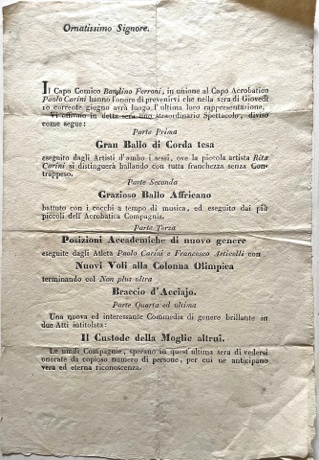 Ornatissimo Signore.
Il Capo Comico Bandino Ferroni, in unione al Capo Acrobatico
Paolo Carini hanno l'onore di prevenirvi che nella sera di Giovedì
10 corrente giugno avrà luogo l'ultima loro rappresentazione.
Vi offrono in detta sera uno straordinario Spettacolo, diviso
come segue:
Parte Prima
Gran Ballo di Corda tesa
eseguito dagli Artisti d'ambo i sessi, ove la piccola artista Rita
Carini si distinguerà ballando con tutta franchezza senza Con-
trappeso.
Parte Seconda
Grazioso Ballo Affricano
battuto con i cocchi a tempo di musica, ed eseguito dai più
piccoli dell'Acrobatica Compagnia.
Parte Terza
Posizioni Accademiche di nuovo genere
eseguite dagli Atleta Paolo Carini e Francesco Articelli con
Nuovi Voli alla Colonna Olimpica
terminando col Non plus ultra
Braccio d'Acciajo.
Parte Quarta ed ultima
Una nuova ed interessante Commedia di genere brillante in
due Atti intitolata:
Il Custode della Moglie altrui.
Le umili Compagnie, sperano in quest'ultima sera di vedersi
onorate da copioso numero di persone, per cui ne anticipano
vera ed eterna riconoscenza.